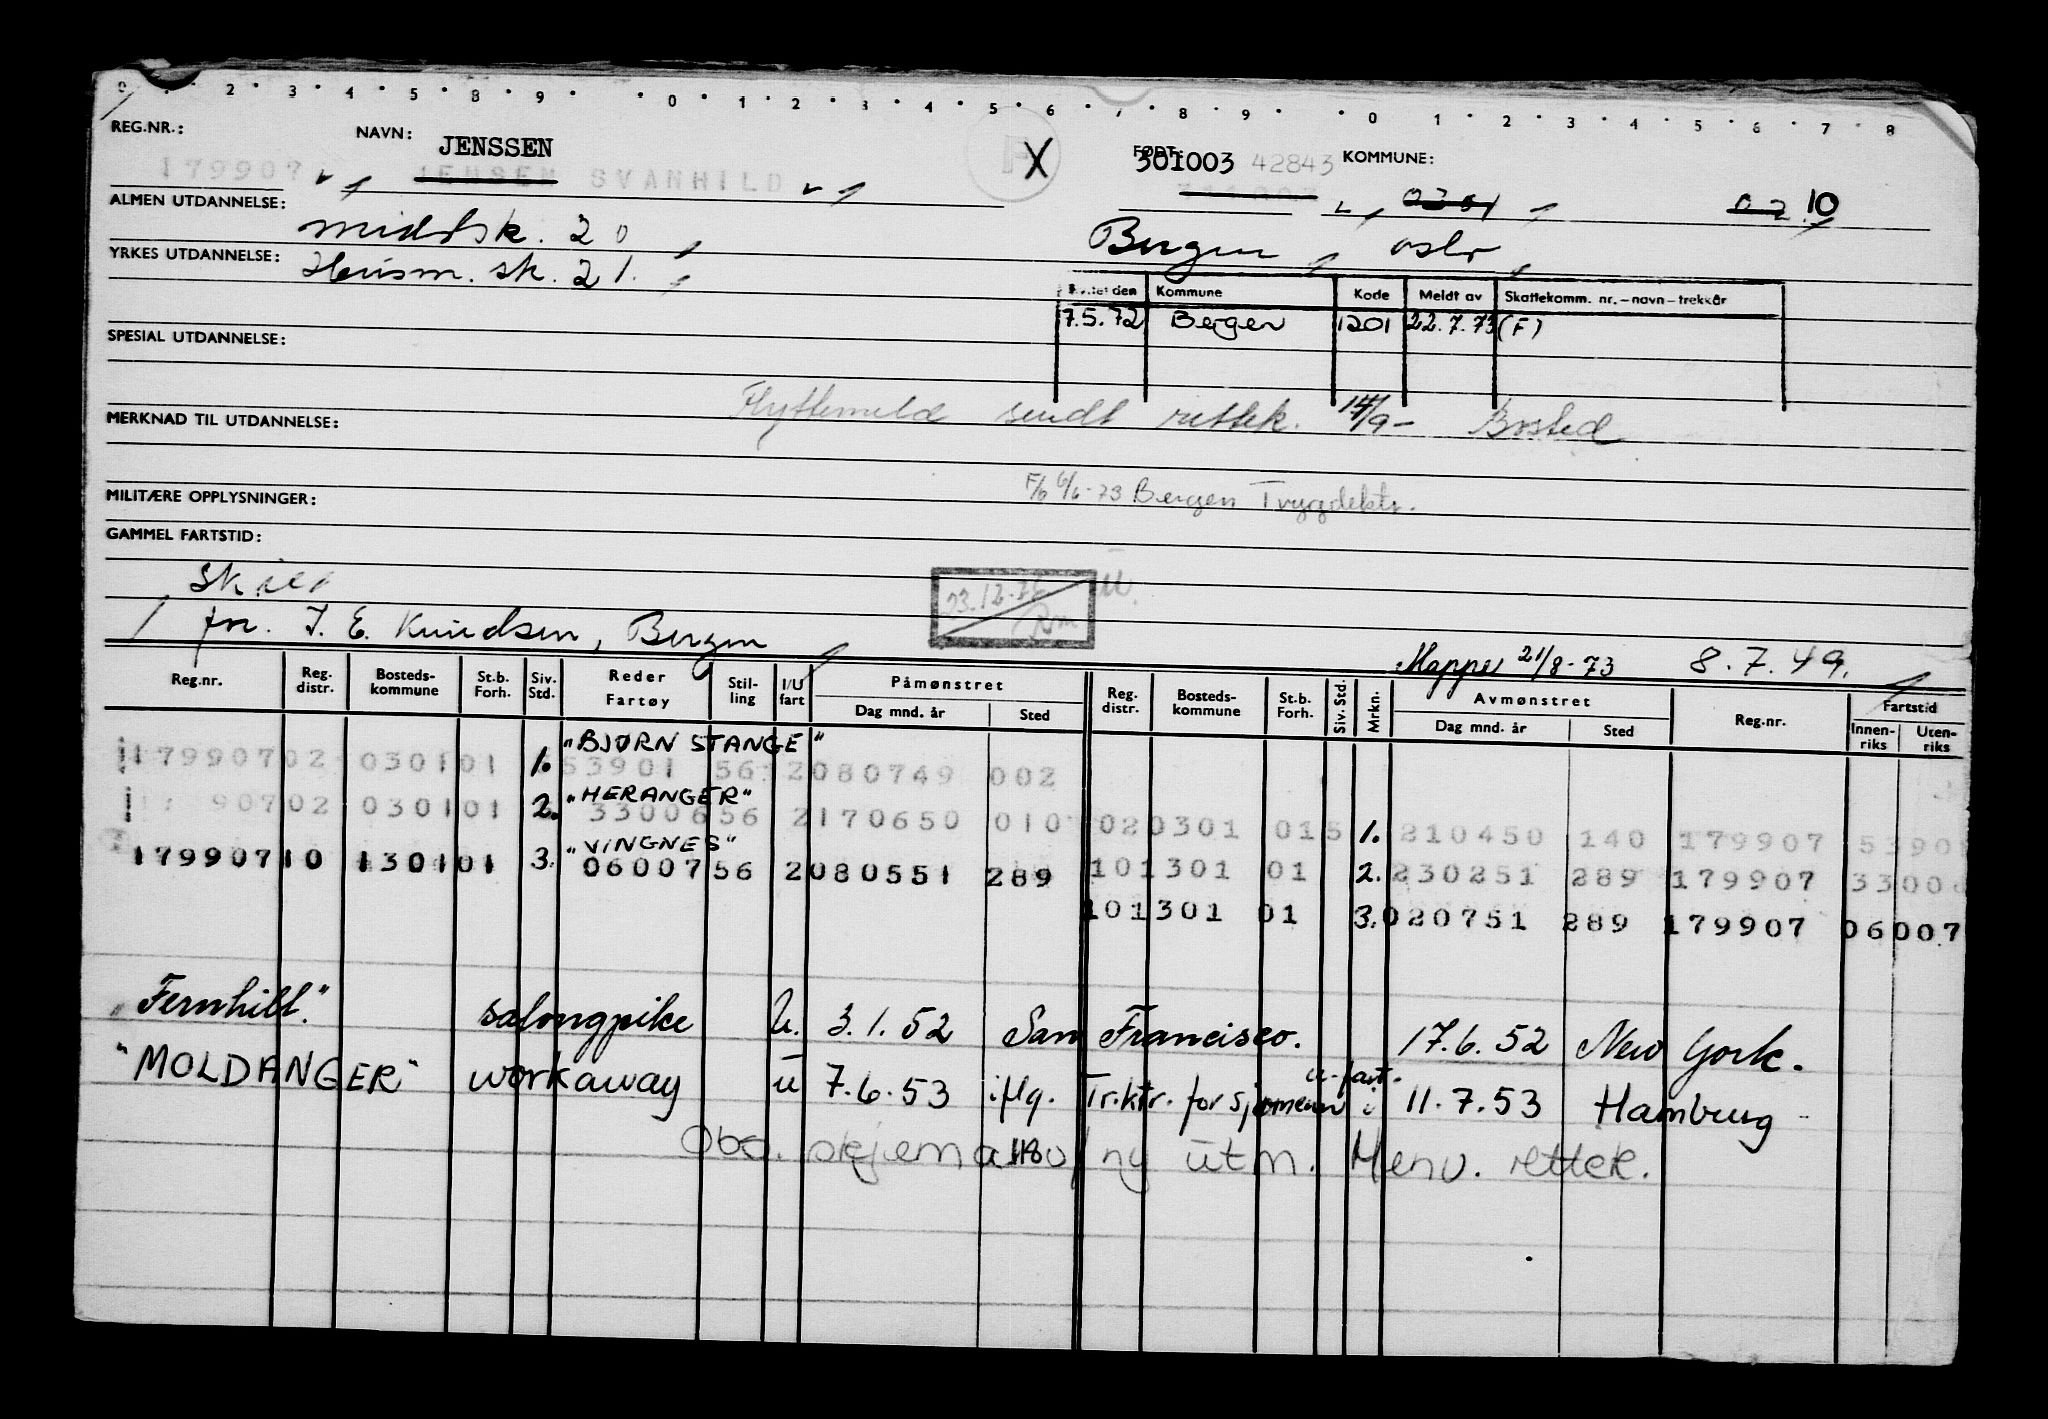 0 · 2 · 3 · 4 · 5 · 8 · 9 · · 0 · 1 · 2 · 3 · 4 · 5 · 6 · 7 · 8 · 9 · · 0 · 1 · 2 · 3 · 4 · 5 · 6 · 7 · 8
REG.NR.: NAVN: JENSSEN X FØDT: 301003 42843 KOMMUNE:
179907 JENSEN SVANHILD 0301 02 10
ALMEN UTDANNELSE: middsk. 20 Bergen, oslo,
YRKES UTDANNELSE: Husm. sk. 21.
Flyttet den Kommune Kode Meldt av Skattekomm. nr.–navn–trekkår
7.5.72 Bergen 1201 22.7.73 (F)
SPESIAL UTDANNELSE:
Flyttemeld sendt rettek. 14/9 – Bosted
MERKNAD TIL UTDANNELSE:
F/6 6/6-73 Bergen Trygdektr.
MILITÆRE OPPLYSNINGER:
GAMMEL FARTSTID:
23.12.76 U.
Rm
for. I. E. Knudsen, Bergen
Mappe 21/8-73 8.7.49.
Reg.nr. Reg. distr. Bosteds-kommune St.b. Forh. Siv. Std. Reder Fartøy Stil-ling I/U fart Påmønstret Dag mnd. år Sted Reg. distr. Bosteds-kommune St.b. Forh. Siv. Std. Mrkn. Avmønstret Dag mnd. år Sted Reg.nr. Fartstid Innen-riks Uten-riks
"BJØRN STANGE"
179907 02 0301 01 1. 53901 56 2 080749 002
"HERANGER"
907 02 0301 01 2. 33006 56 2 170650 010 02 0301 01 5 1. 210450 140 179907 5390
"VINGNES"
179907 10 1301 01 3. 06007 56 2 080551 289 10 1301 01 2. 230251 289 179907 3300
10 1301 01 3. 020751 289 179907 06007
"Fernhill." salongpike U. 3.1.52 San Francisco. 17.6.52 New York.
"MOLDANGER" workaway u 7.6.53 iflg. Tr.ktr. for sjømenn i u-fart. 11.7.53 Hamburg -
Obs. skjema 1180/ ny utm. Henv. rettek.